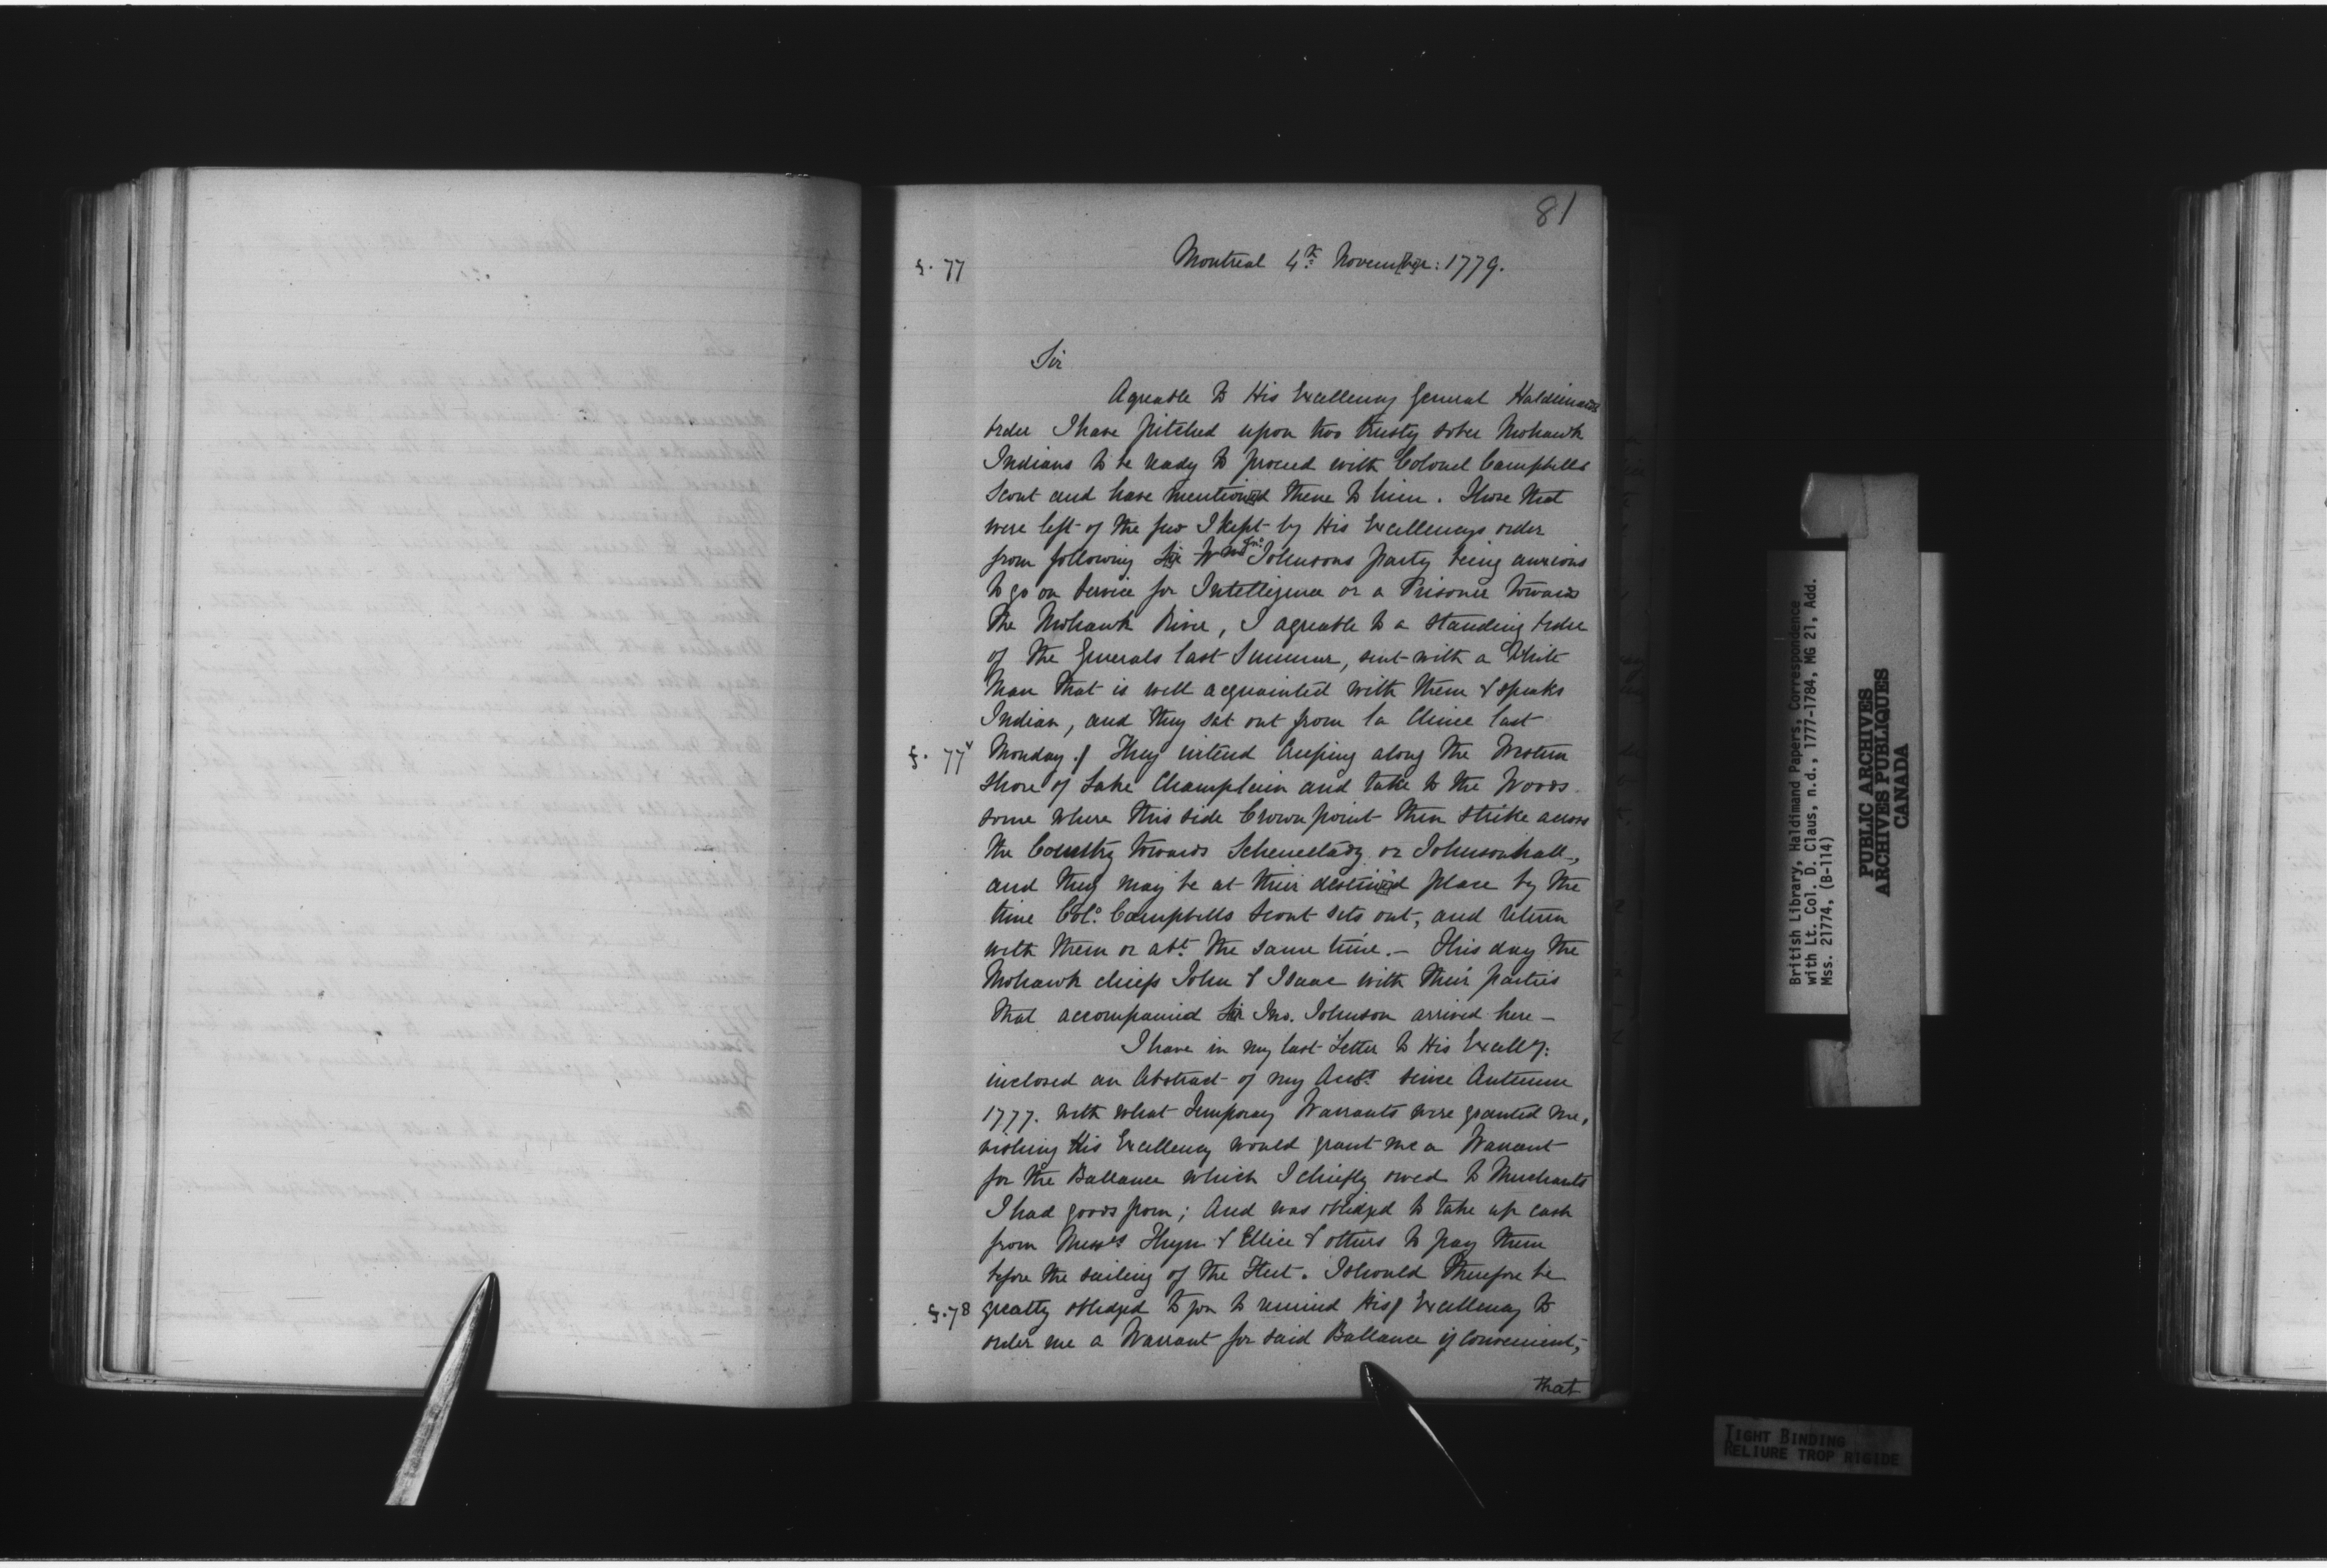 81
f. 77
Montreal 4th: November: 1779.
Sir
Agreable to His Excellency General Haldimands
order I have pitched upon two trusty sober Mohawk
Indians to be ready to proceed with Colonel Campbells
Scout and have mentioned them to him. Those that
were left of the few I kept by His Excellencys order
from following Sir Wm Jno Johnsons party being anxious
to go on Service for Intelligence or a Prisoner towards
the Mohawk River, I agreable to a standing order
of the Generals last Summer, sent with a White
Man that is well acquainted with them & speaks
Indian, and they sat out from la Chine last
f. 77v Monday./ They intend keeping along the Western
shore of Lake Champlain and take to the Woods
some where this side Crown point then strike across
the Country towards Schenectady or Johnson hall,
and they may be at their destined place by the
time Colo. Campbells Scout sets out, and return
with them or abt. the same time. – This day the
Mohawk chiefs John & Isaac with their parties
that accompanied Sir Jno. Johnson arrived here –
I have in my last Letter to His Excelly:
inclosed an Abstract of my Accts since Autumn
1777. with what temporay Warrants were granted me,
wishing His Excellency would grant me a Warrant
for the Ballance which I chiefly owed to Merchants
I had goods from; And was obliged to take up cash
from Messrs & Ellice & others to pay them
before the sailing of the Fleet. I should therefore be
f. 78 greatly obliged to you to remind His/ Excellency to
order me a Warrant for said Ballance if convenient;
that
British Library, Haldimand Papers, Correspondence
with Lt. Col. D. Claus, n.d., 1777-1784, MG 21, Add.
Mss. 21774, (B-114)
PUBLIC ARCHIVES
ARCHIVES PUBLIQUES
CANADA
TIGHT BINDING
RELIURE TROP RIGIDE